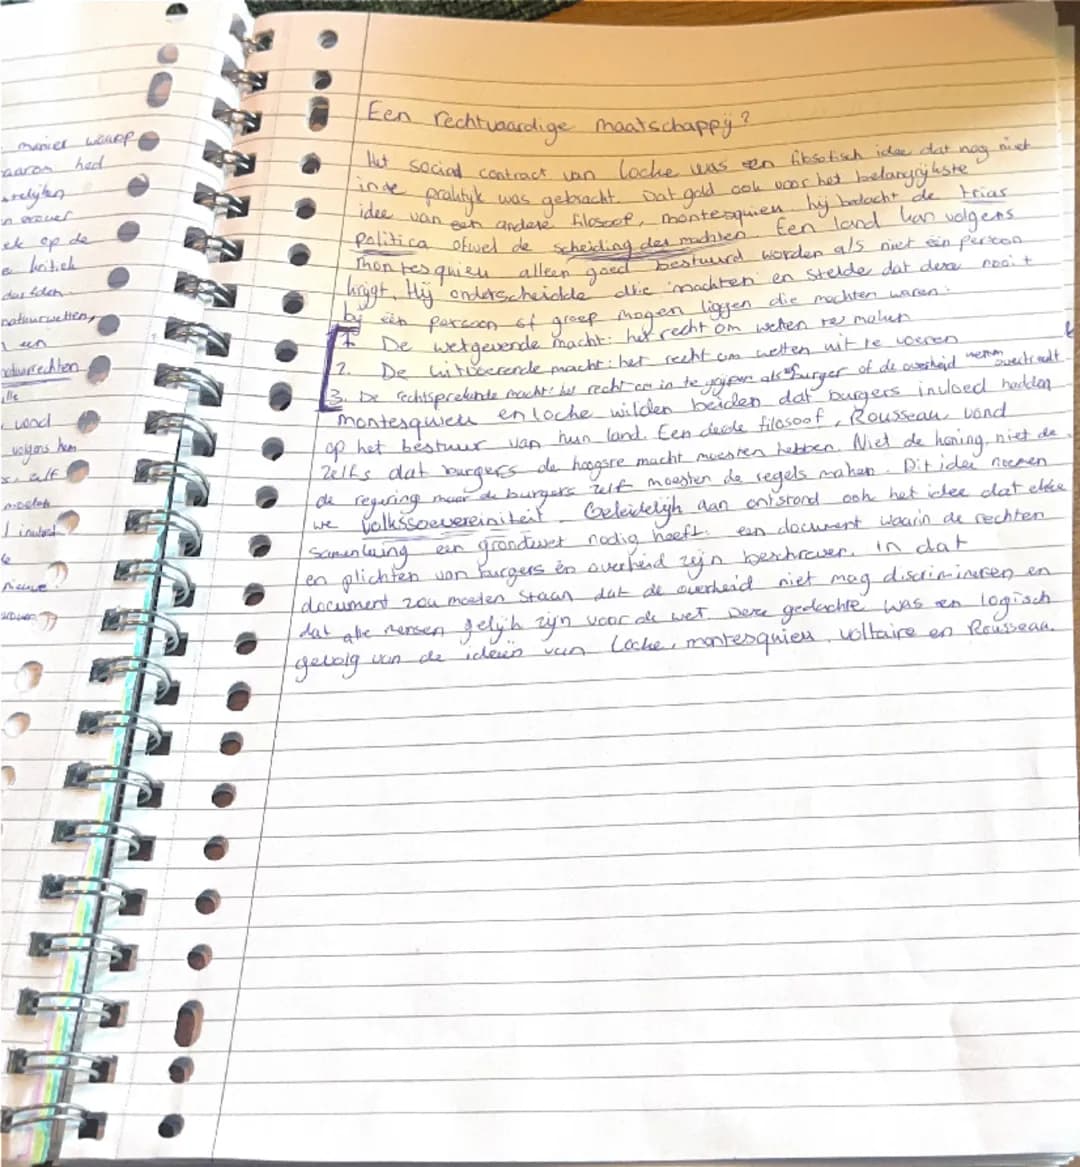 manier waarop
aarom had
ek op de
kritich
natuurwetten,
een
natuurrechten
vond
volgens hem
zelf
moeten
invloed
nieuwe
Een rechtvaardige maatschappij?
Het sociaal contract van Locke was een filosofisch idee dat nog niet
in de praktijk was gebracht. Dat gold ook voor het belangrijkste
idee van een andere filosoof, montesquieu hij bedacht de trias
politica ofwel de scheiding der machten. Een land kan volgens
Montesquieu alleen goed bestuurd worden als niet één persoon
krijgt. Hij onderscheidde drie machten en stelde dat deze nooit
bij één persoon of groep mogen liggen die machten waren:
1. De wetgevende macht: het recht om wetten te maken
2. De uitvoerende macht: het recht om wetten uit te voeren
3. De rechtsprekende macht: het recht om in te grijpen als burger of de overheid wetten overtreedt
montesquieu en locke wilden beiden dat burgers invloed hadden
op het bestuur van hun land. Een derde filosoof, Rousseau vond
zelfs dat burgers de hoogste macht moesten hebben. Niet de koning, niet de
de regering maar de burgers zelf moesten de regels maken. Dit idee noemen
we volkssoevereiniteit. Geleidelijk aan ontstond ook het idee dat elke
samenleving een grondwet nodig heeft: een document waarin de rechten
en plichten van burgers én overheid zijn beschreven. in dat
document zou moeten staan dat de overheid niet mag discrimineren en
dat alle mensen gelijk zijn voor de wet. Deze gedachte was een logisch
gevolg van de ideeën van Locke, montesquieu, voltaire en Rousseau.